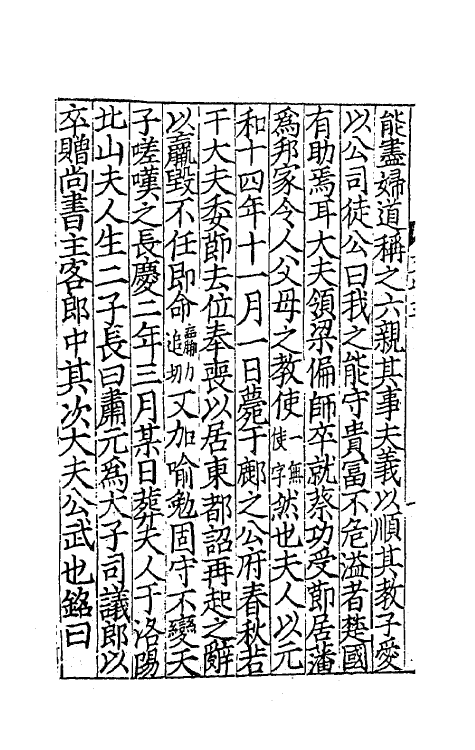 能盡婦道稱之六親其事夫義以順其教子愛
以公司徒公曰我之能守貴富不危溢者楚國
有助焉耳大夫領梁偏師卒就蔡功受節居藩
爲邦家令人父母之教使一無使字然也夫人以元
和十四年十一月一日薨于鄜之公府春秋若
干大夫委節去位奉喪以居東都詔再起之辭
以羸毀不任即命羸力追切又加喻勉固守不變天
子嗟嘆之長慶二年三月某日葬夫人于洛陽
北山夫人生二子長曰肅元爲太子司議郎以
卒贈尚書主客郎中其次大夫公武也銘曰